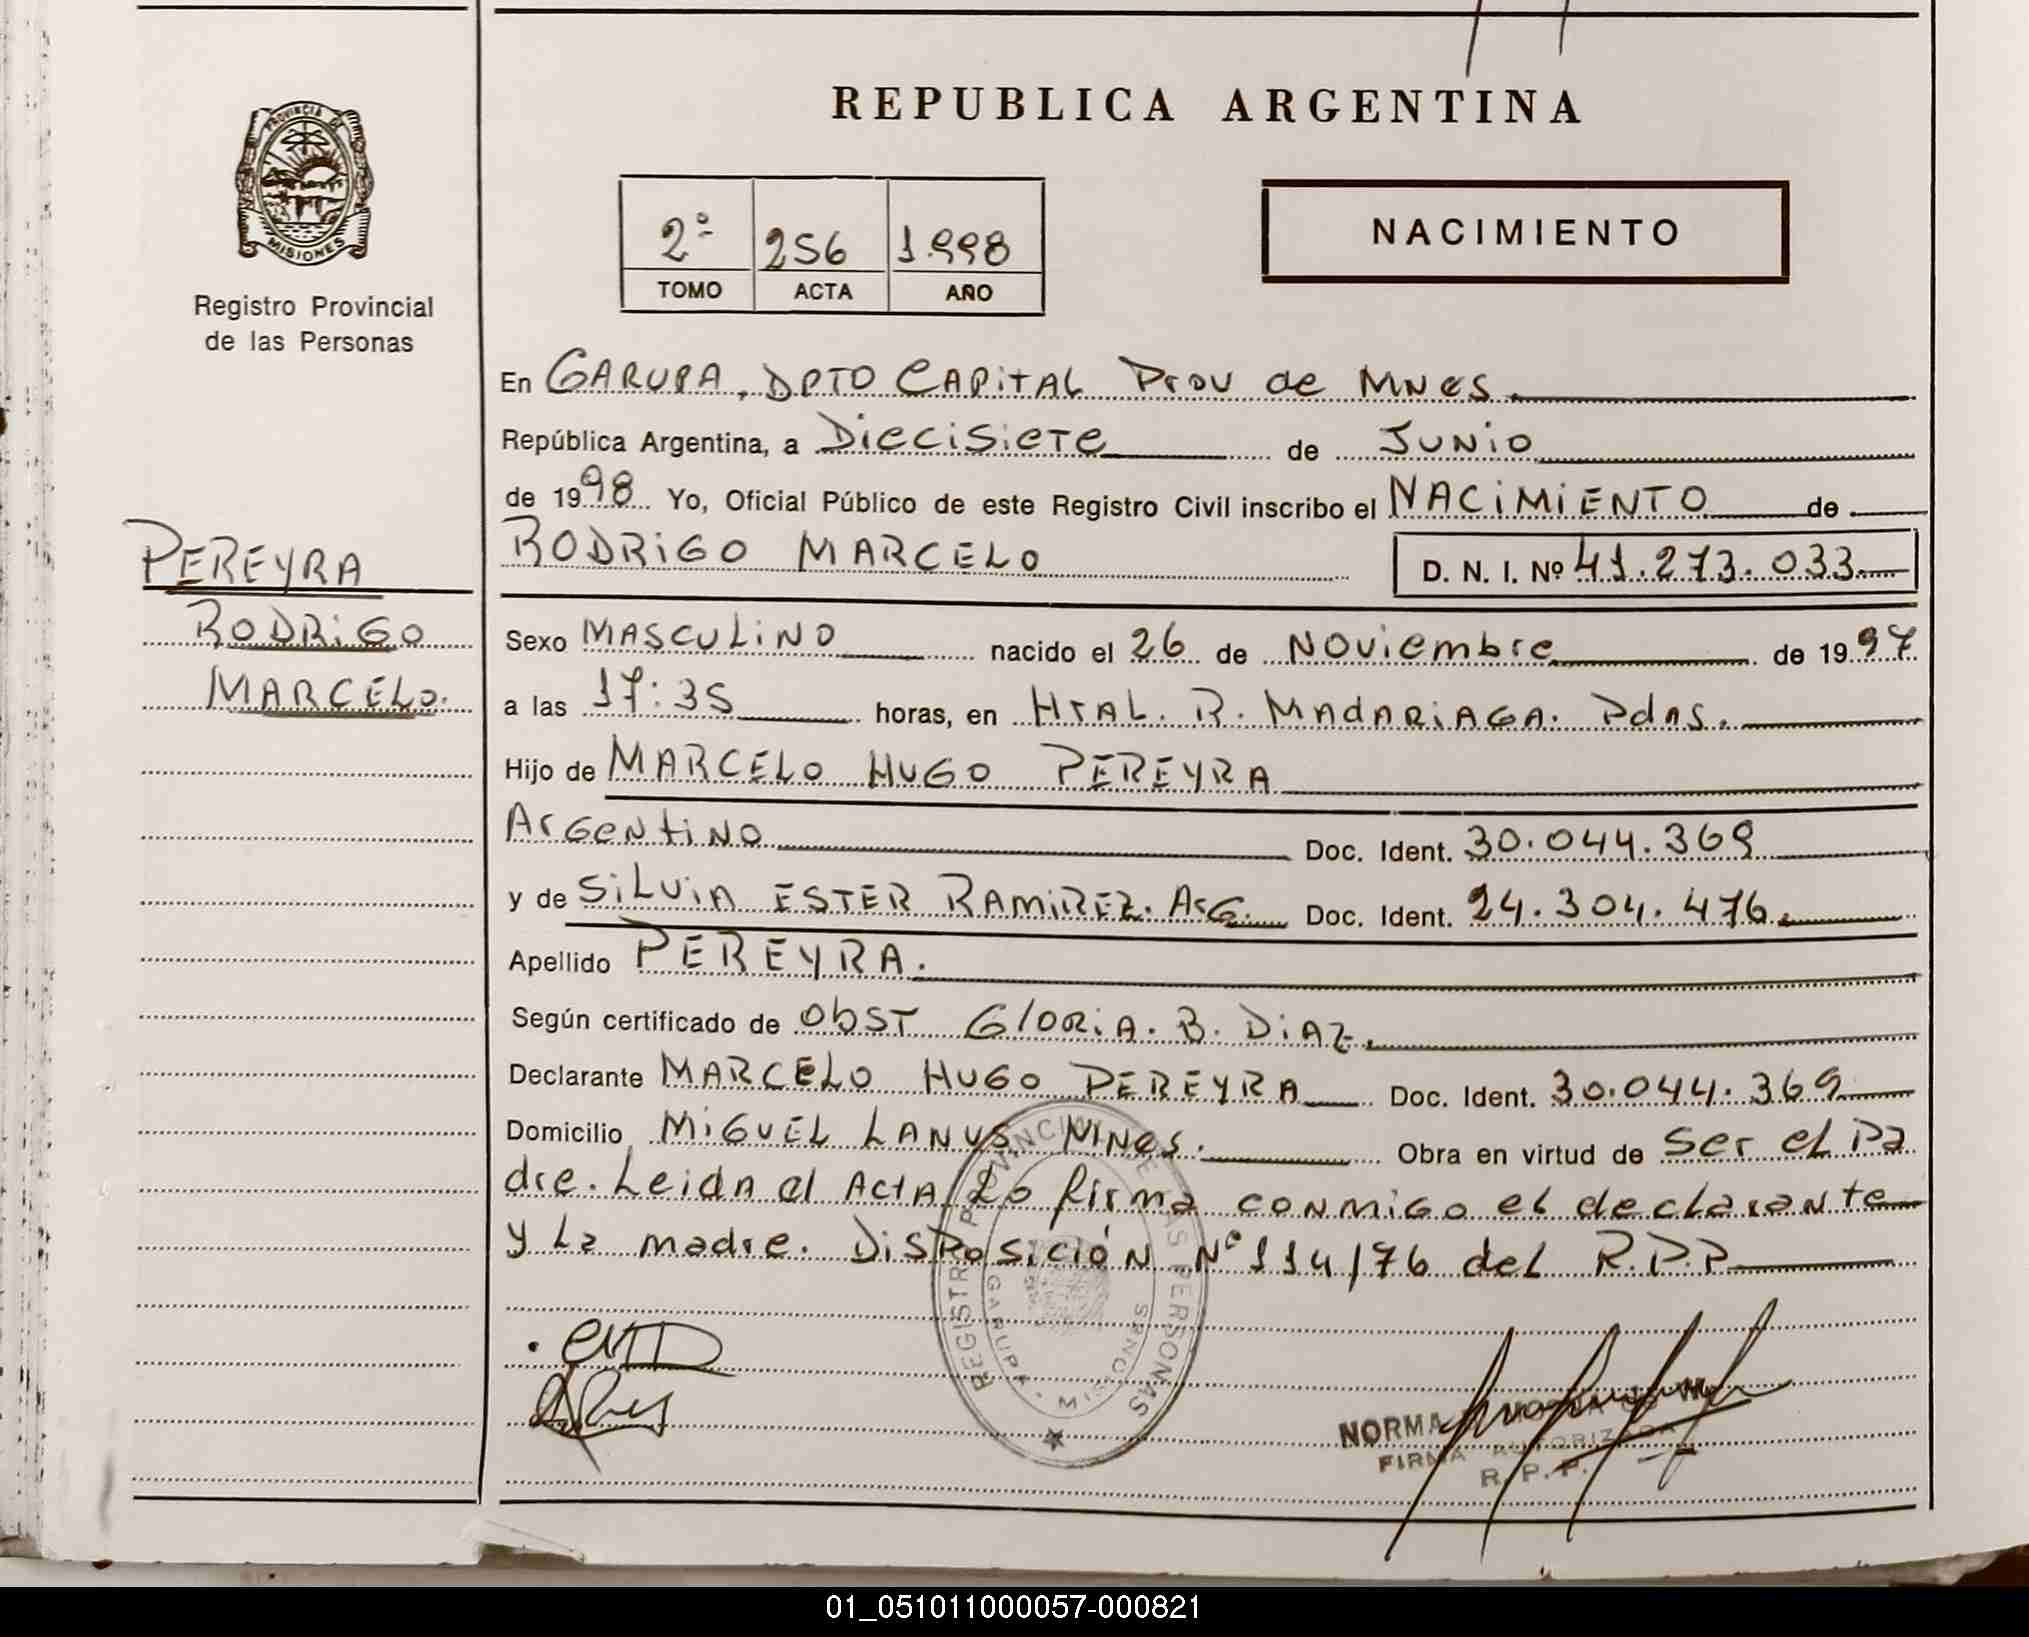 REPUBLICA ARGENTINA
PROVINCIA DE MISIONES
Registro Provincial
de las Personas
2º 256 1.998
TOMO ACTA AÑO
NACIMIENTO
En GARUPA, DPTO CAPITAL Prov de MNes.
República Argentina, a Diecisiete de JUNIO
de 1998 Yo, Oficial Público de este Registro Civil inscribo el NACIMIENTO de
PEREYRA
RODRIGO
MARCELO.
RODRIGO MARCELO D. N. I. Nº 41.273.033
Sexo MASCULINO nacido el 26 de NOviembre de 1997
a las 17:35 horas, en HTAL. R. MADARIAGA. Pdas.
Hijo de MARCELO HUGO PEREYRA
Argentino Doc. Ident. 30.044.369
y de SILVIA ESTER RAMIREZ. Arg. Doc. Ident. 24.304.476.
Apellido PEREYRA.
Según certificado de Obst GloriA. B. DiAZ.
Declarante MARCELO HUGO PEREYRA Doc. Ident. 30.044.369
Domicilio MIGUEL LANUS MNes. Obra en virtud de ser el pa
dre. Leida el Acta Lo firma conmigo el declarante
y La madre. Disposición Nº 114/76 del R.P.P
REGISTRO PROVINCIAL DE LAS PERSONAS
GARUPA - MISIONES
NORMA
FIRMA AUTORIZADA
R. P. P.
01_051011000057-000821